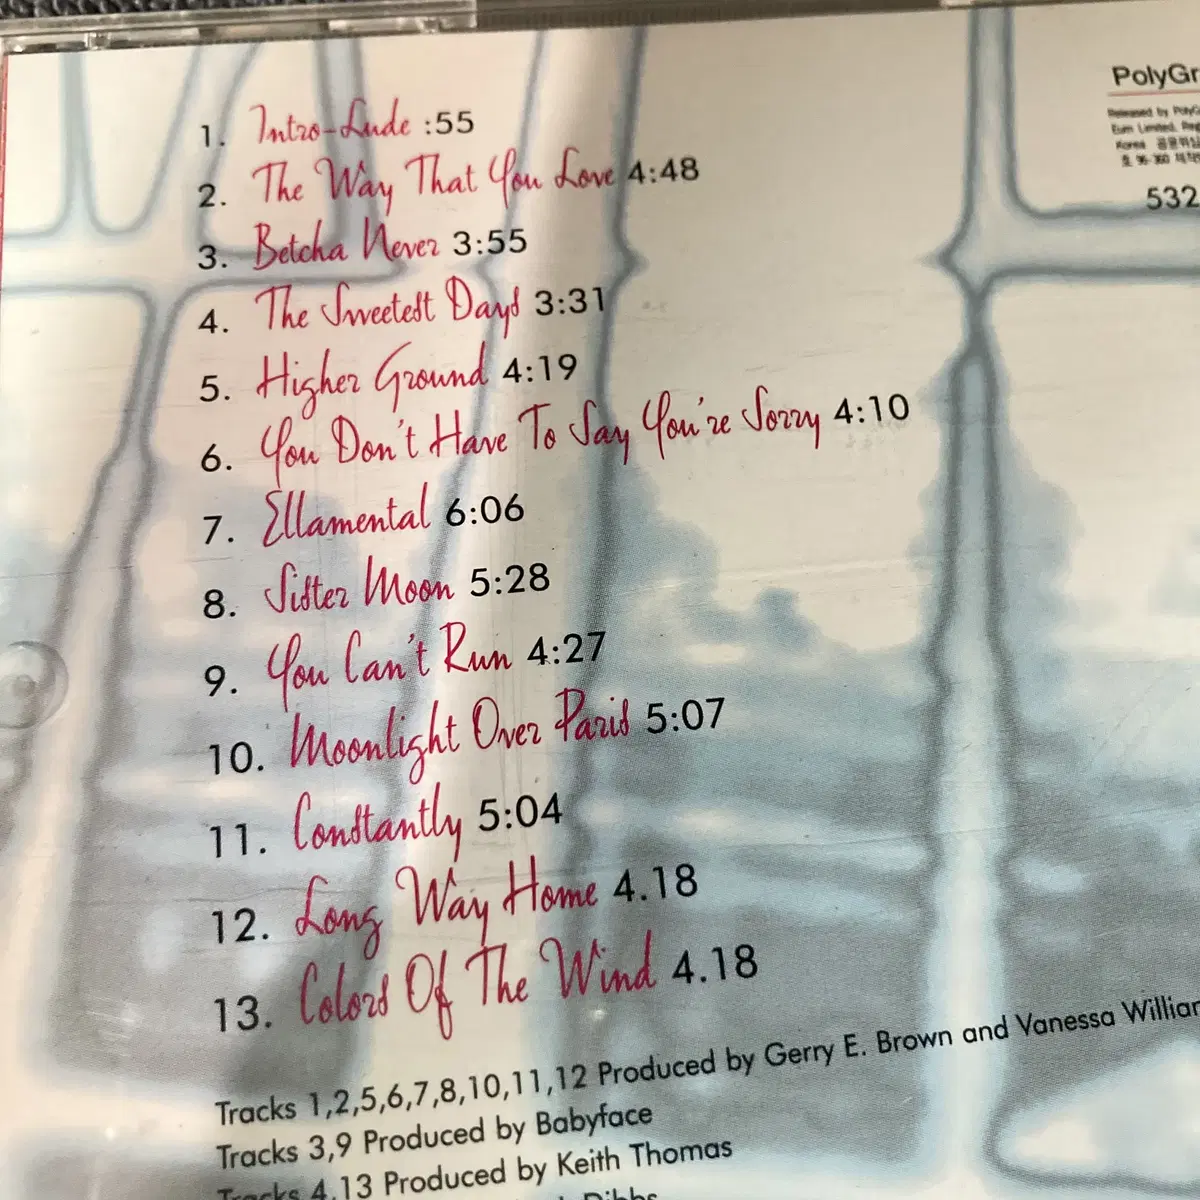 1. Intro-Lude :55
2. The Way That You Love 4:48
3. Betcha Never 3:55
4. The Sweetest Days 3:31
5. Higher Ground 4:19
6. You Don't Have To Say You're Sorry 4:10
7. Ellamental 6:06
8. Sister Moon 5:28
9. You Can't Run 4:27
10. Moonlight Over Paris 5:07
11. Constantly 5:04
12. Long Way Home 4.18
13. Colors Of The Wind 4.18
Tracks 1,2,5,6,7,8,10,11,12 Produced by Gerry E. Brown and Vanessa Williar
Tracks 3,9 Produced by Babyface
Tracks 4,13 Produced by Keith Thomas
PolyGr
Released by
Limited.
Korea
532